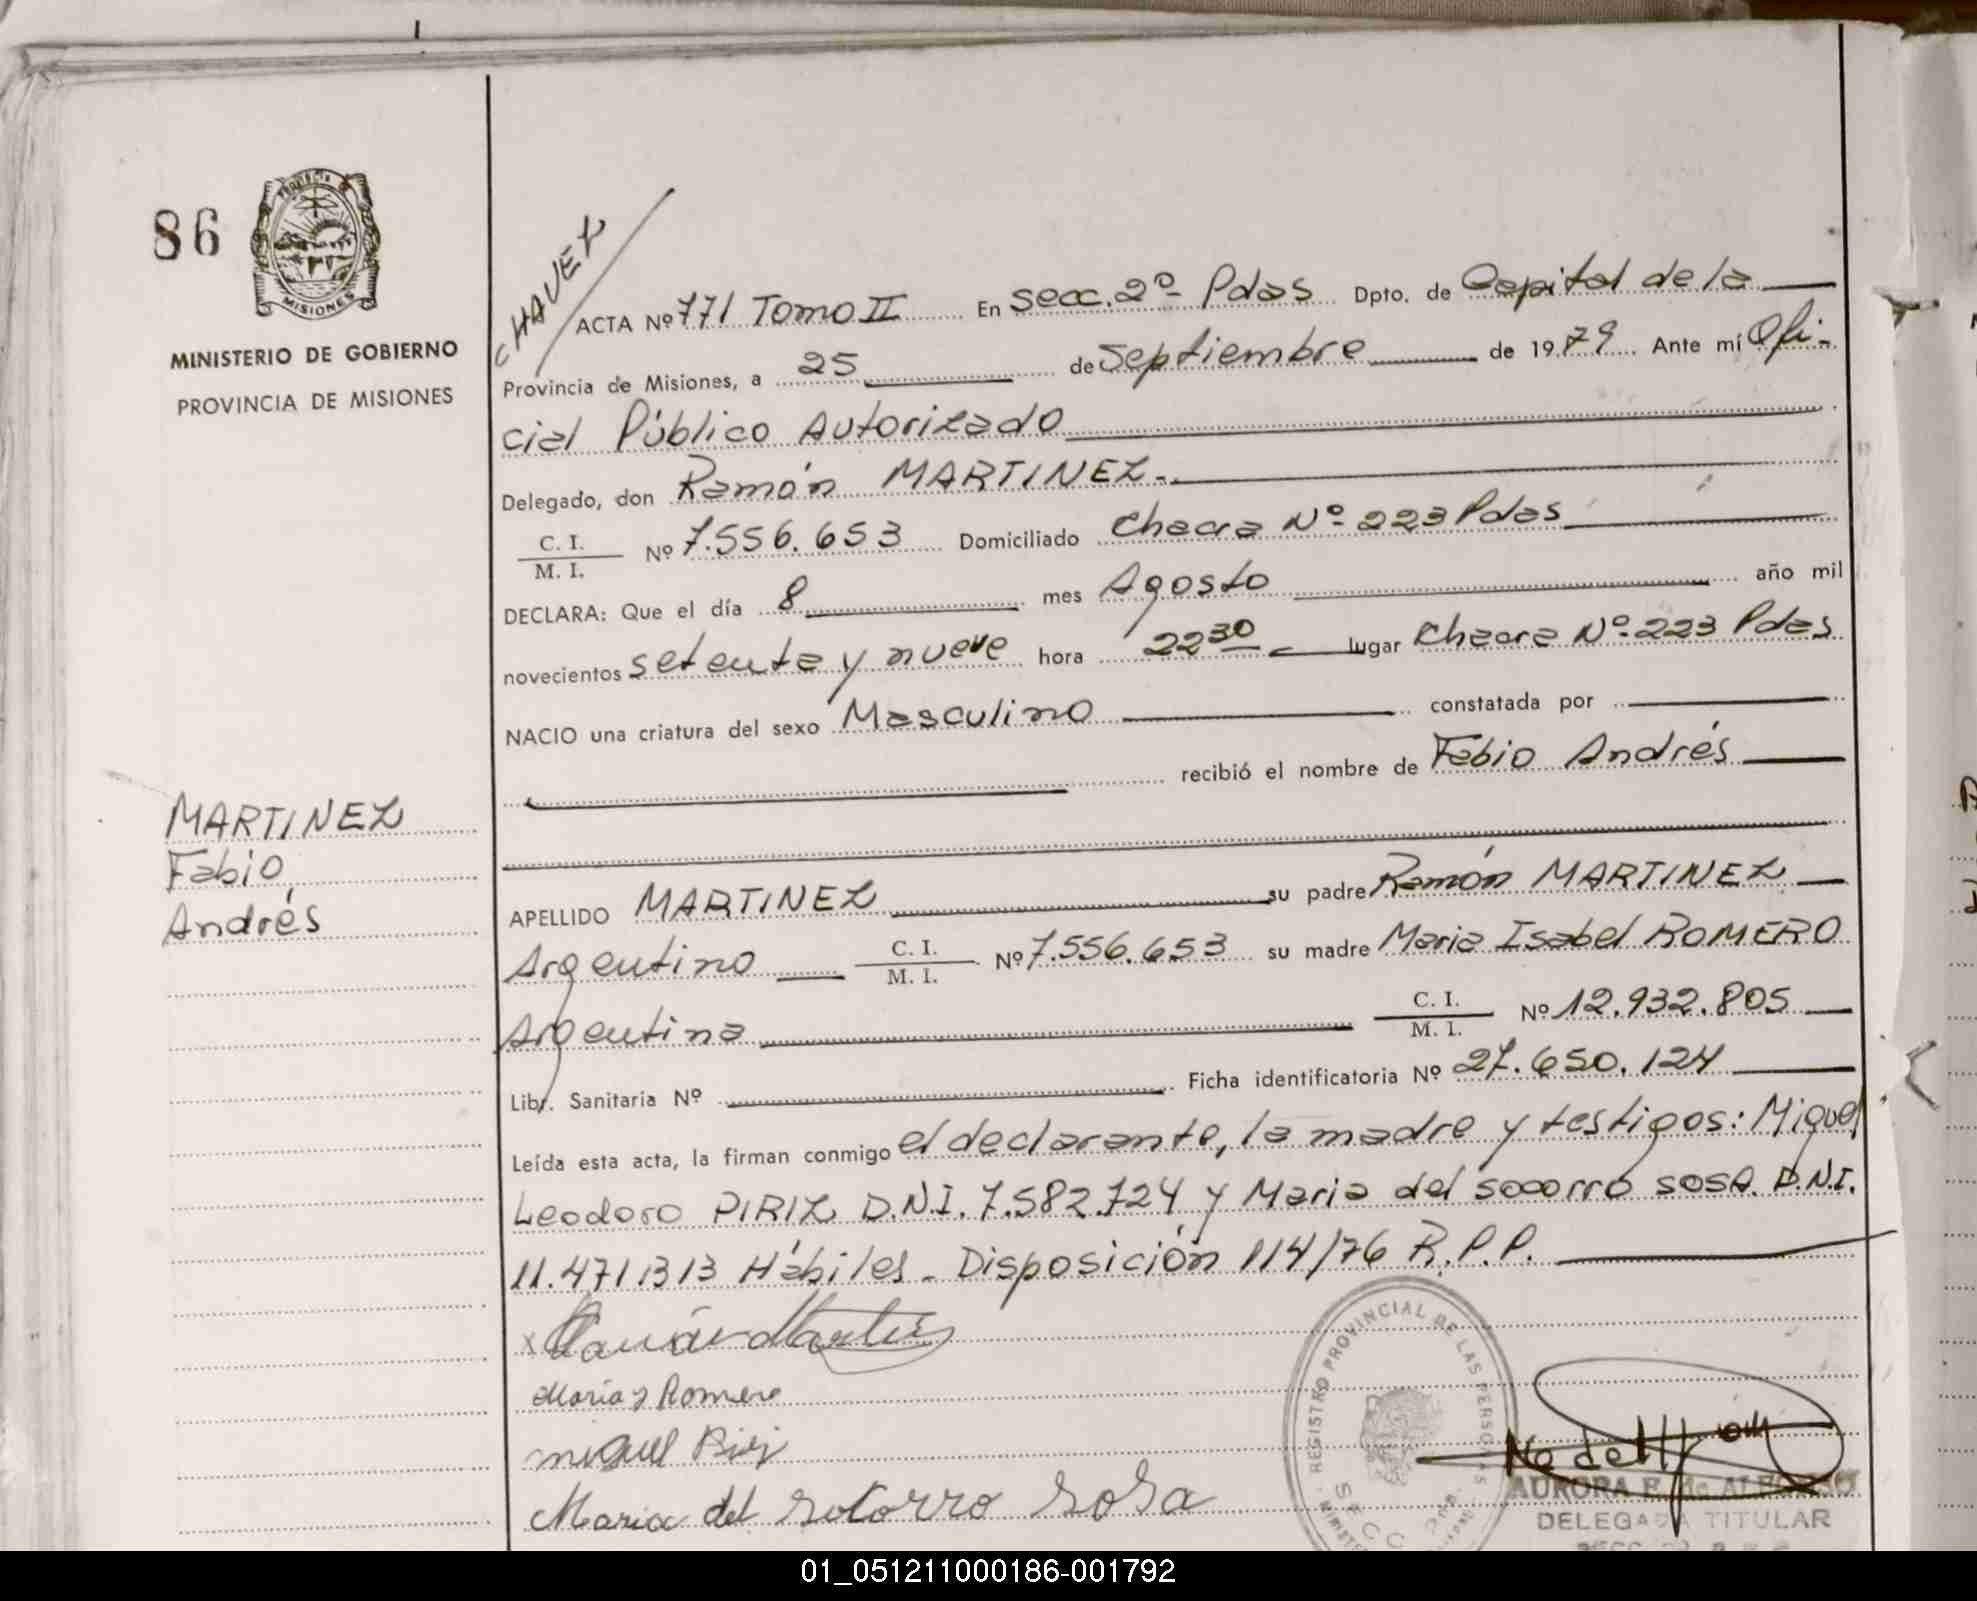 86
PROVINCIA DE
MISIONES
MINISTERIO DE GOBIERNO
PROVINCIA DE MISIONES
CHAVEZ
ACTA Nº 771 Tomo II En secc. 2º Pdas Dpto. de Capital de la
Provincia de Misiones, a 25 de Septiembre de 1979 Ante mí Ofi-
cial Público Autorizado
Delegado, don Ramón MARTINEZ.
C. I.
M. I. Nº 7.556.653 Domiciliado Chacra Nº 223 Pdas
DECLARA: Que el día 8 mes Agosto año mil
novecientos setenta y nueve hora 22 30 lugar Chacra Nº 223 Pdas
NACIO una criatura del sexo Masculino constatada por
recibió el nombre de Fabio Andrés
MARTINEZ
Fabio
Andrés
APELLIDO MARTINEZ su padre Ramón MARTINEZ
Argentino C. I. M. I. Nº 7.556.653 su madre Maria Isabel ROMERO
Argentina C. I. M. I. Nº 12.932.805
Libr. Sanitaria Nº Ficha identificatoria Nº 27.650.124
Leída esta acta, la firman conmigo el declarante, la madre y testigos: Miguel
Leodoro PIRIZ D.N.I. 7.582.724 y Maria del socorro sosa. D.N.I.
11.471313 Hábiles - Disposición 114/76 R.P.P.
x Ramón Martinez
Maria y Romero
miguel Piriz
Maria del socorro sosa
REGISTRO PROVINCIAL DE LAS PERSONAS
SECC
AURORA
DELEGADA TITULAR
01_051211000186-001792